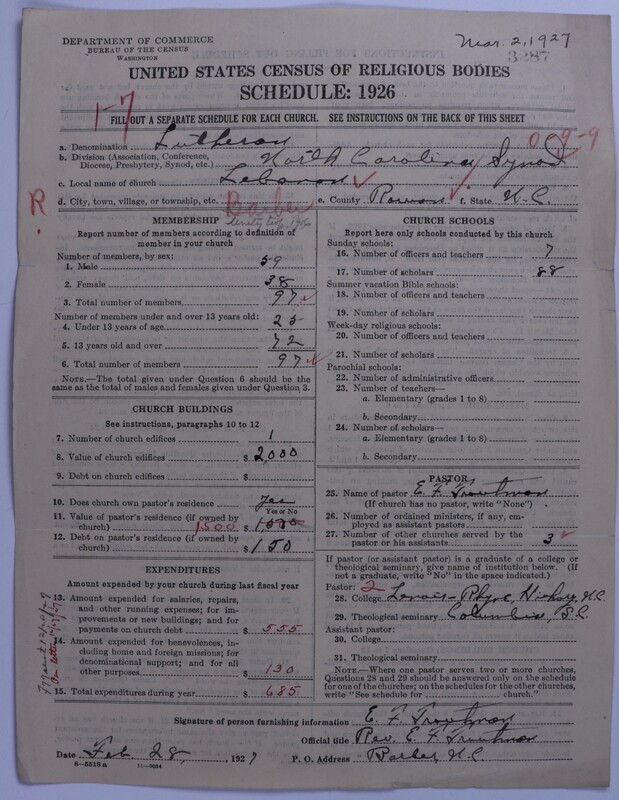 DEPARTMENT OF COMMERCE
BUREAU OF THE CENSUS
WASHINGTON
Mar. 2, 1927
3287
UNITED STATES CENSUS OF RELIGIOUS BODIES
SCHEDULE: 1926
1-7
FILL OUT A SEPARATE SCHEDULE FOR EACH CHURCH. SEE INSTRUCTIONS ON THE BACK OF THIS SHEET
0-9-9
a. Denomination Lutheran
b. Division (Association, Conference, Diocese, Presbytery, Synod, etc.) North Carolina Synod
c. Local name of church Lebanon
R.
d. City, town, village, or township, etc. Barber e. County Rowan f. State N.C.
MEMBERSHIP
Report number of members according to definition of member in your church
Number of members, by sex:
1. Male 59
2. Female 38
3. Total number of members 97
Number of members under and over 13 years old:
4. Under 13 years of age 25
5. 13 years old and over 72
6. Total number of members 97
NOTE.—The total given under Question 6 should be the same as the total of males and females given under Question 3.
CHURCH BUILDINGS
See instructions, paragraphs 10 to 12
7. Number of church edifices 1
8. Value of church edifices $ 2000
9. Debt on church edifices $
10. Does church own pastor's residence Yes
Yes or No
11. Value of pastor's residence (if owned by church) 1500 $
12. Debt on pastor's residence (if owned by church) $ 150
EXPENDITURES
Amount expended by your church during last fiscal year
13. Amount expended for salaries, repairs, and other running expenses; for improvements or new buildings; and for payments on church debt $ 555
14. Amount expended for benevolences, including home and foreign missions; for denominational support; and for all other purposes $ 130
15. Total expenditures during year $ 685
CHURCH SCHOOLS
Report here only schools conducted by this church
Sunday schools:
16. Number of officers and teachers 7
17. Number of scholars 88
Summer vacation Bible schools:
18. Number of officers and teachers
19. Number of scholars
Week-day religious schools:
20. Number of officers and teachers
21. Number of scholars
Parochial schools:
22. Number of administrative officers
23. Number of teachers—
a. Elementary (grades 1 to 8)
b. Secondary
24. Number of scholars—
a. Elementary (grades 1 to 8)
b. Secondary
PASTOR
25. Name of pastor E. F. Troutman
(If church has no pastor, write "None")
26. Number of ordained ministers, if any, employed as assistant pastors
27. Number of other churches served by the pastor or his assistants 3
If pastor (or assistant pastor) is a graduate of a college or theological seminary, give name of institution below. (If not a graduate, write "No" in the space indicated.)
Pastor: 2
28. College Lenoir-Rhyne, Hickory, N.C.
29. Theological seminary Columbia, S.C.
Assistant pastor:
30. College
31. Theological seminary
NOTE.—Where one pastor serves two or more churches, Questions 28 and 29 should be answered only on the schedule for one of the churches; on the schedules for the other churches, write "See schedule for church."
Signature of person furnishing information E. F. Troutman
Official title Rev. E. F. Troutman
Date Feb. 28, 1927
P. O. Address Barber, N.C.
8-5518a 11-9034